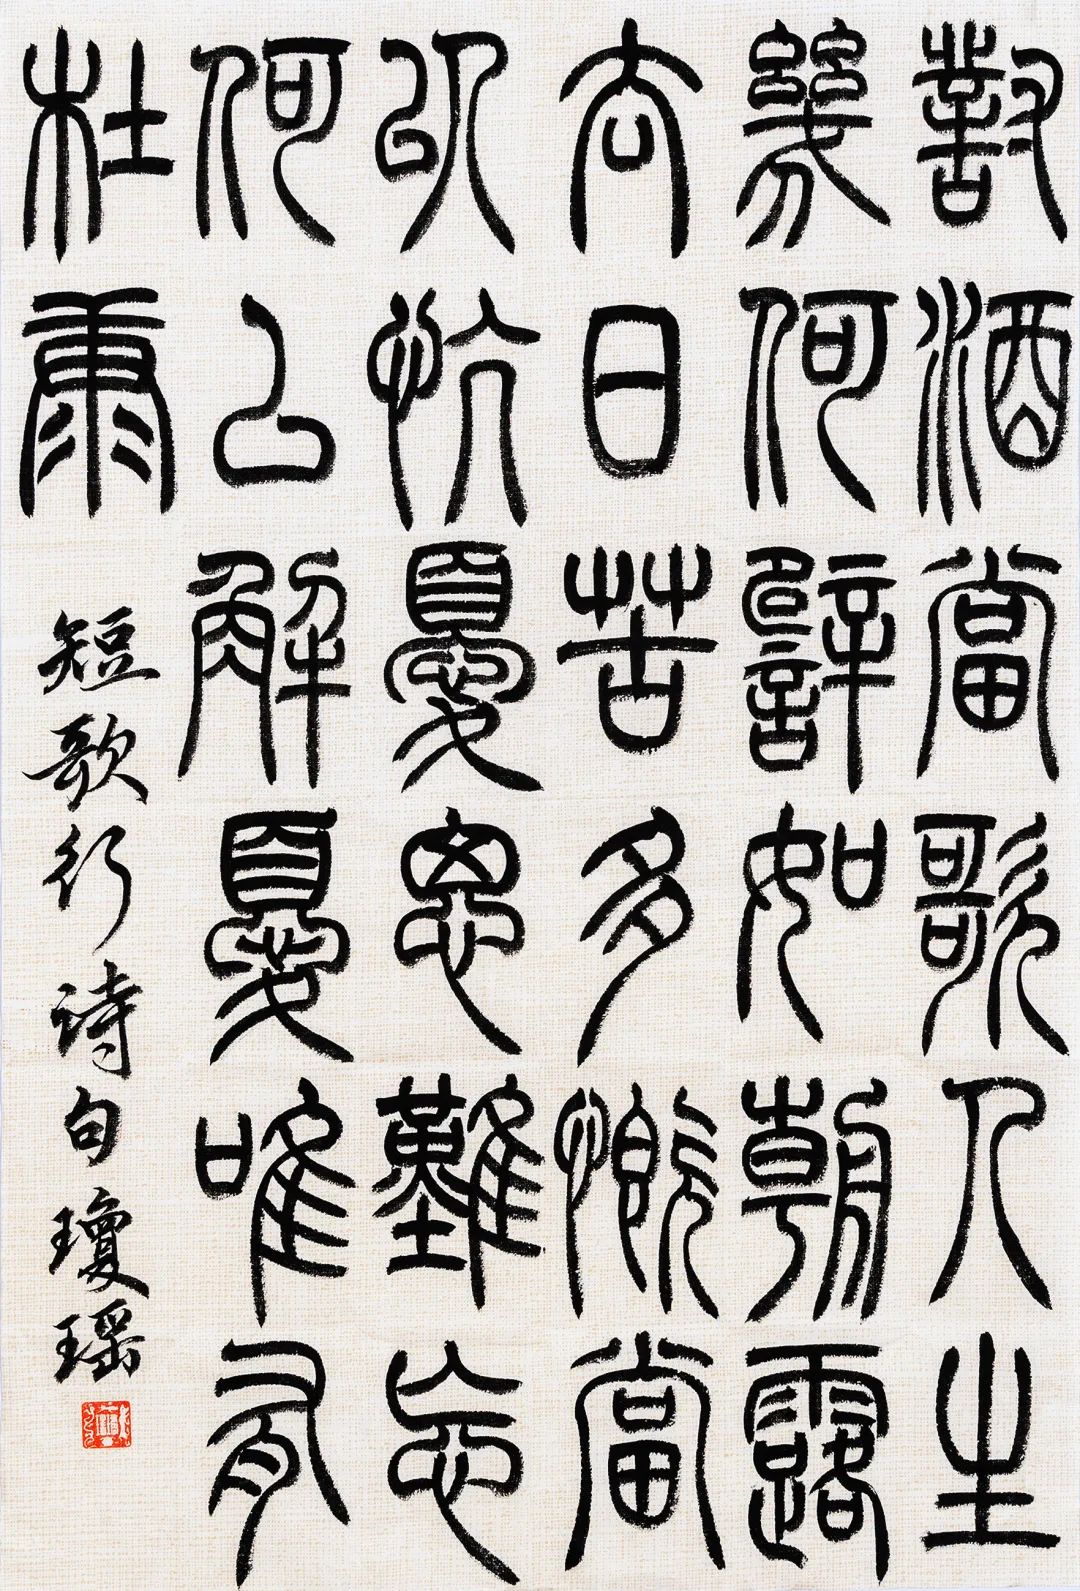 對酒當歌人生
幾何譬如朝露
去日苦多慨當
以忼憂思難忘
何以解憂唯有
杜康
短歌行诗句瓊瑶